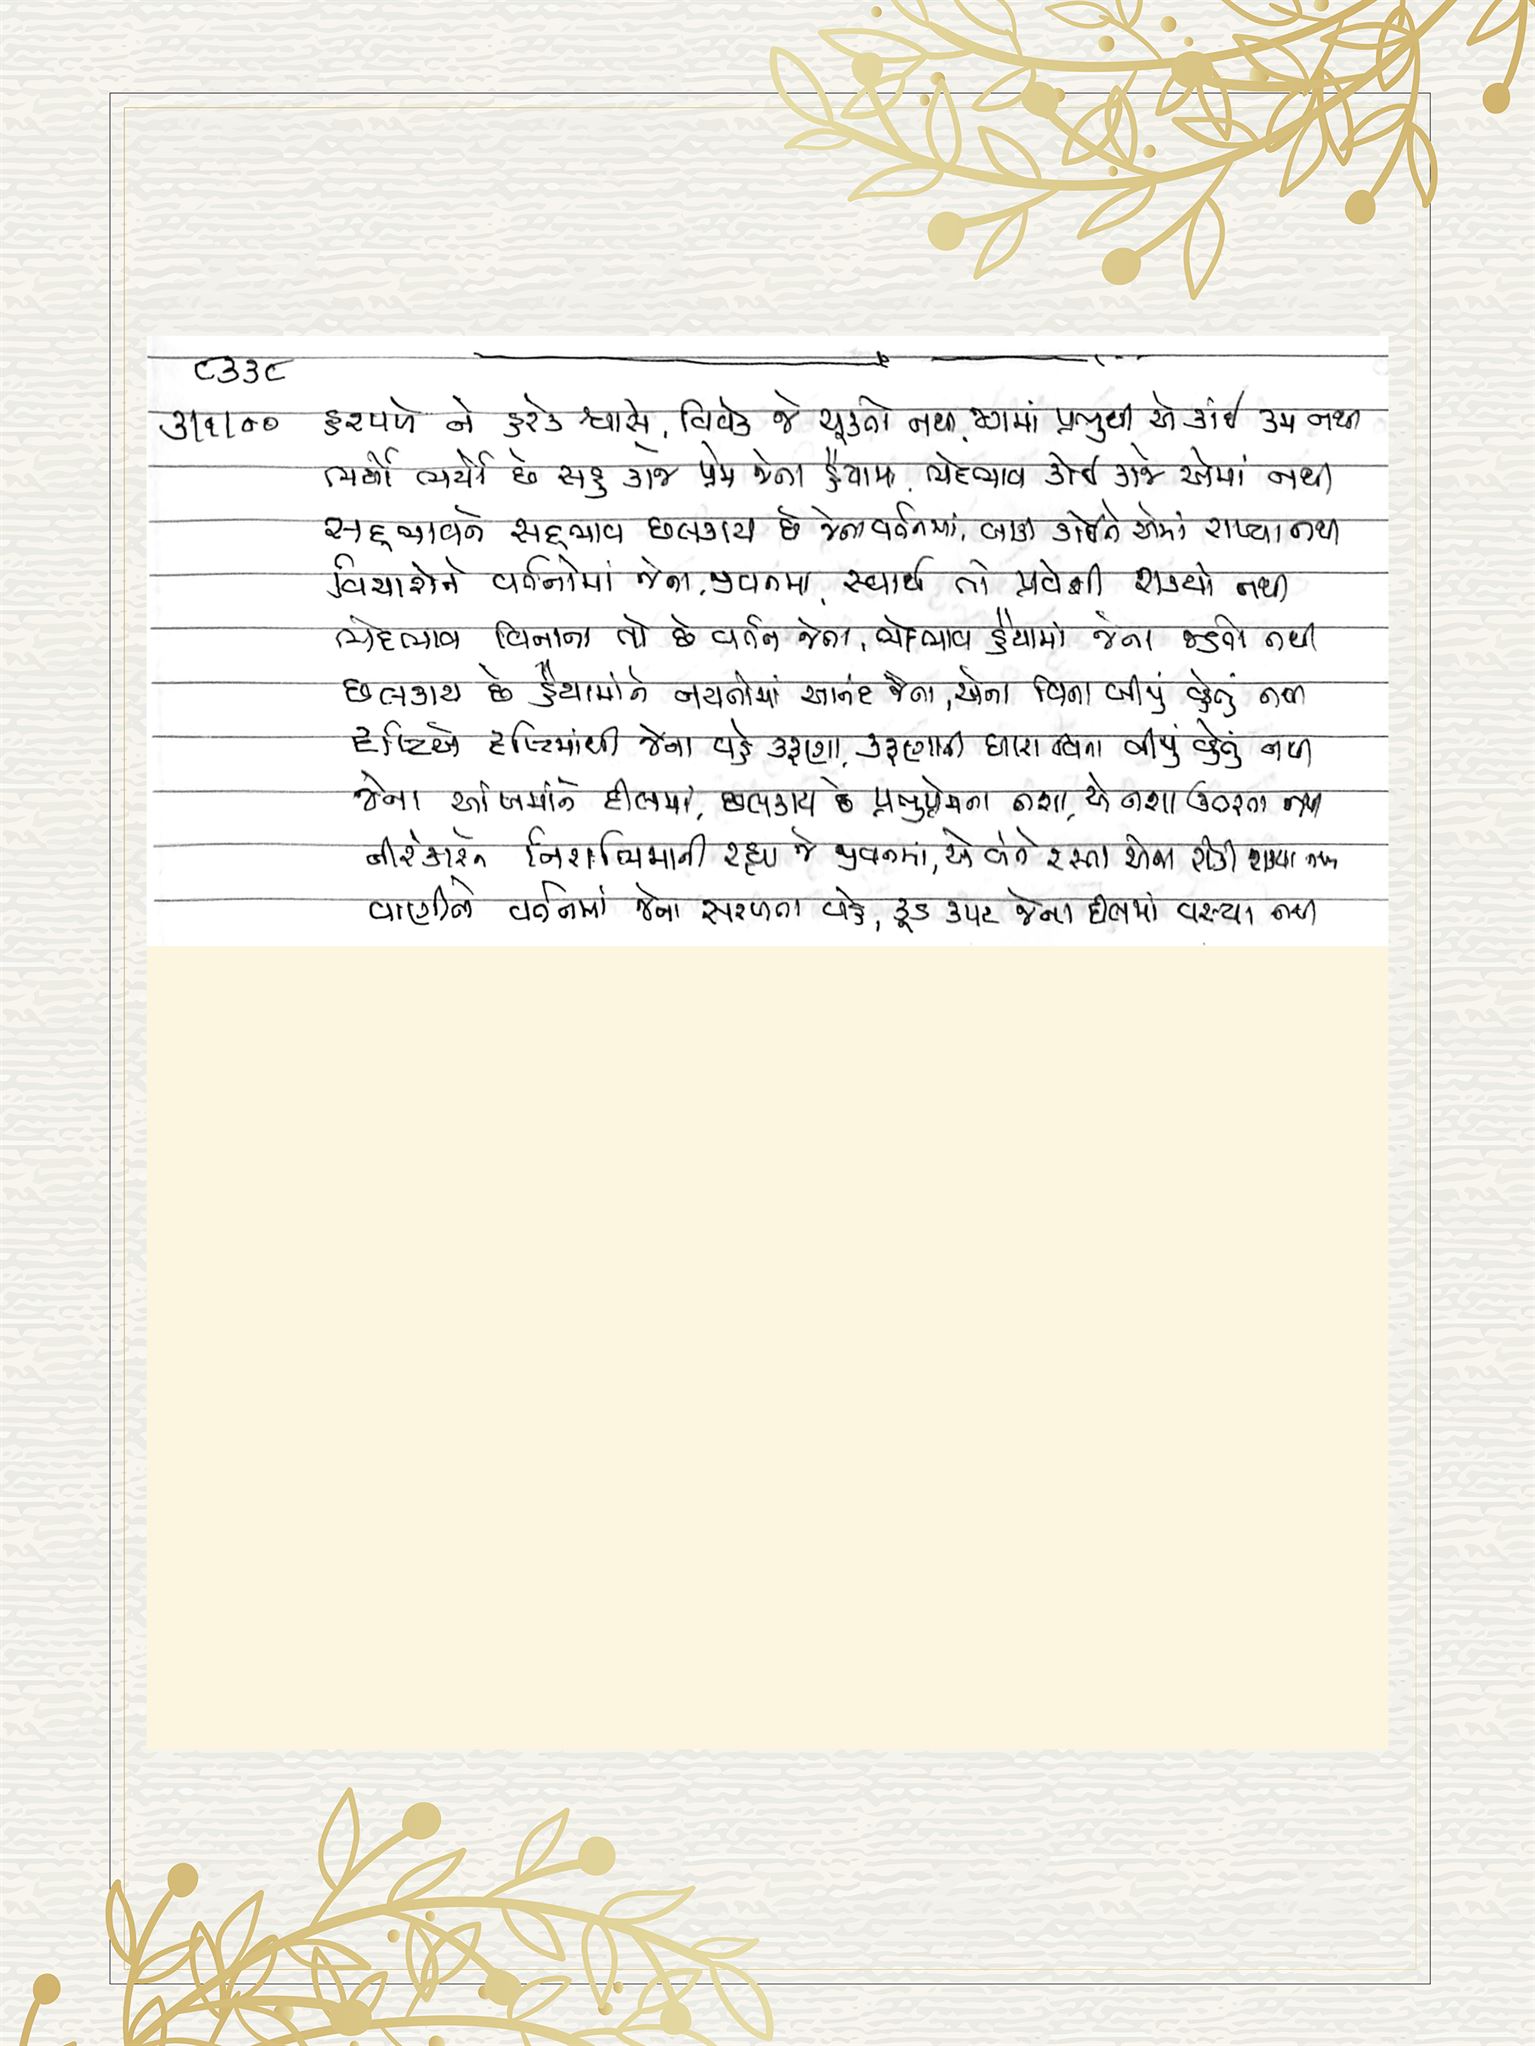 ૮૩૩૮
૩/૧/૦૦ હરપળે ને હરેક શ્વાસે, વિવેક જે ચૂકતો નથી, જગમાં પ્રભુથી એ કાંઈ કમ નથી
ભર્યો ભર્યો છે સહુ કાજે પ્રેમ જેના હૈયામાં, ભેદભાવ કોઈ કાજે એમાં નથી
સદ્દભાવને સદ્દભાવ છલકાય છે જેના વર્તનમાં, બાકી કોઈને એમાં રાખ્યા નથી
વિચારોને વર્તનોમાં જેના, જીવનમાં, સ્વાર્થ તો પ્રવેશી શક્યો નથી
ભેદભાવ વિનાના તો છે વર્તન જેના, ભેદભાવ હૈયામાં જેના જડતો નથી
છલકાય છે હૈયામાંને નયનોમાં આનંદ જેના, એના વિના બીજું વહેતું નથી
દૃષ્ટિએ દૃષ્ટિમાંથી જેના વહે કરૂણા, કરૂણાની ધારા વિના બીજું વહેતું નથી
જેના આંખમાંને દીલમાં, છલકાય છે પ્રભુપ્રેમના નશા, એ નશા ઉતરતા નથી
નિરાભિમાની રહ્યા જે જીવનમાં, એ બંને રસ્તા એના રોકી શક્યા નથી
વાણીને વર્તનમાં જેના સરળતા વહે, કૂડ કપટ જેના દીલમાં વસ્યા નથી